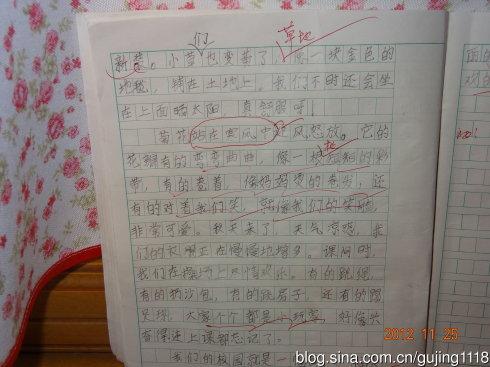 们
草地
新装。小草也变黄了,像一块金色的
地毯,铺在土地上。我们不时还会坐
在上面晒太阳,真舒服呀!
菊花站在寒风中迎风怒放。它的
花瓣有的弯弯曲曲,像一根的彩
带,有的卷着,像妈妈烫的卷发,还
有的对着我们笑,就像我们的笑脸,
非常可爱。秋天来了,天气凉爽,我
们的大明正在慢慢地增多。课间时,
我们在操场上尽情欢乐。有的跳绳,
有的扔沙包,有的跳房子,还有的踢
足球,大家个个都是小玩家,好像兴
奋得连上课都忘记了。
我们的校园就是一
2012 11 25
blog.sina.com.cn/gujing1118